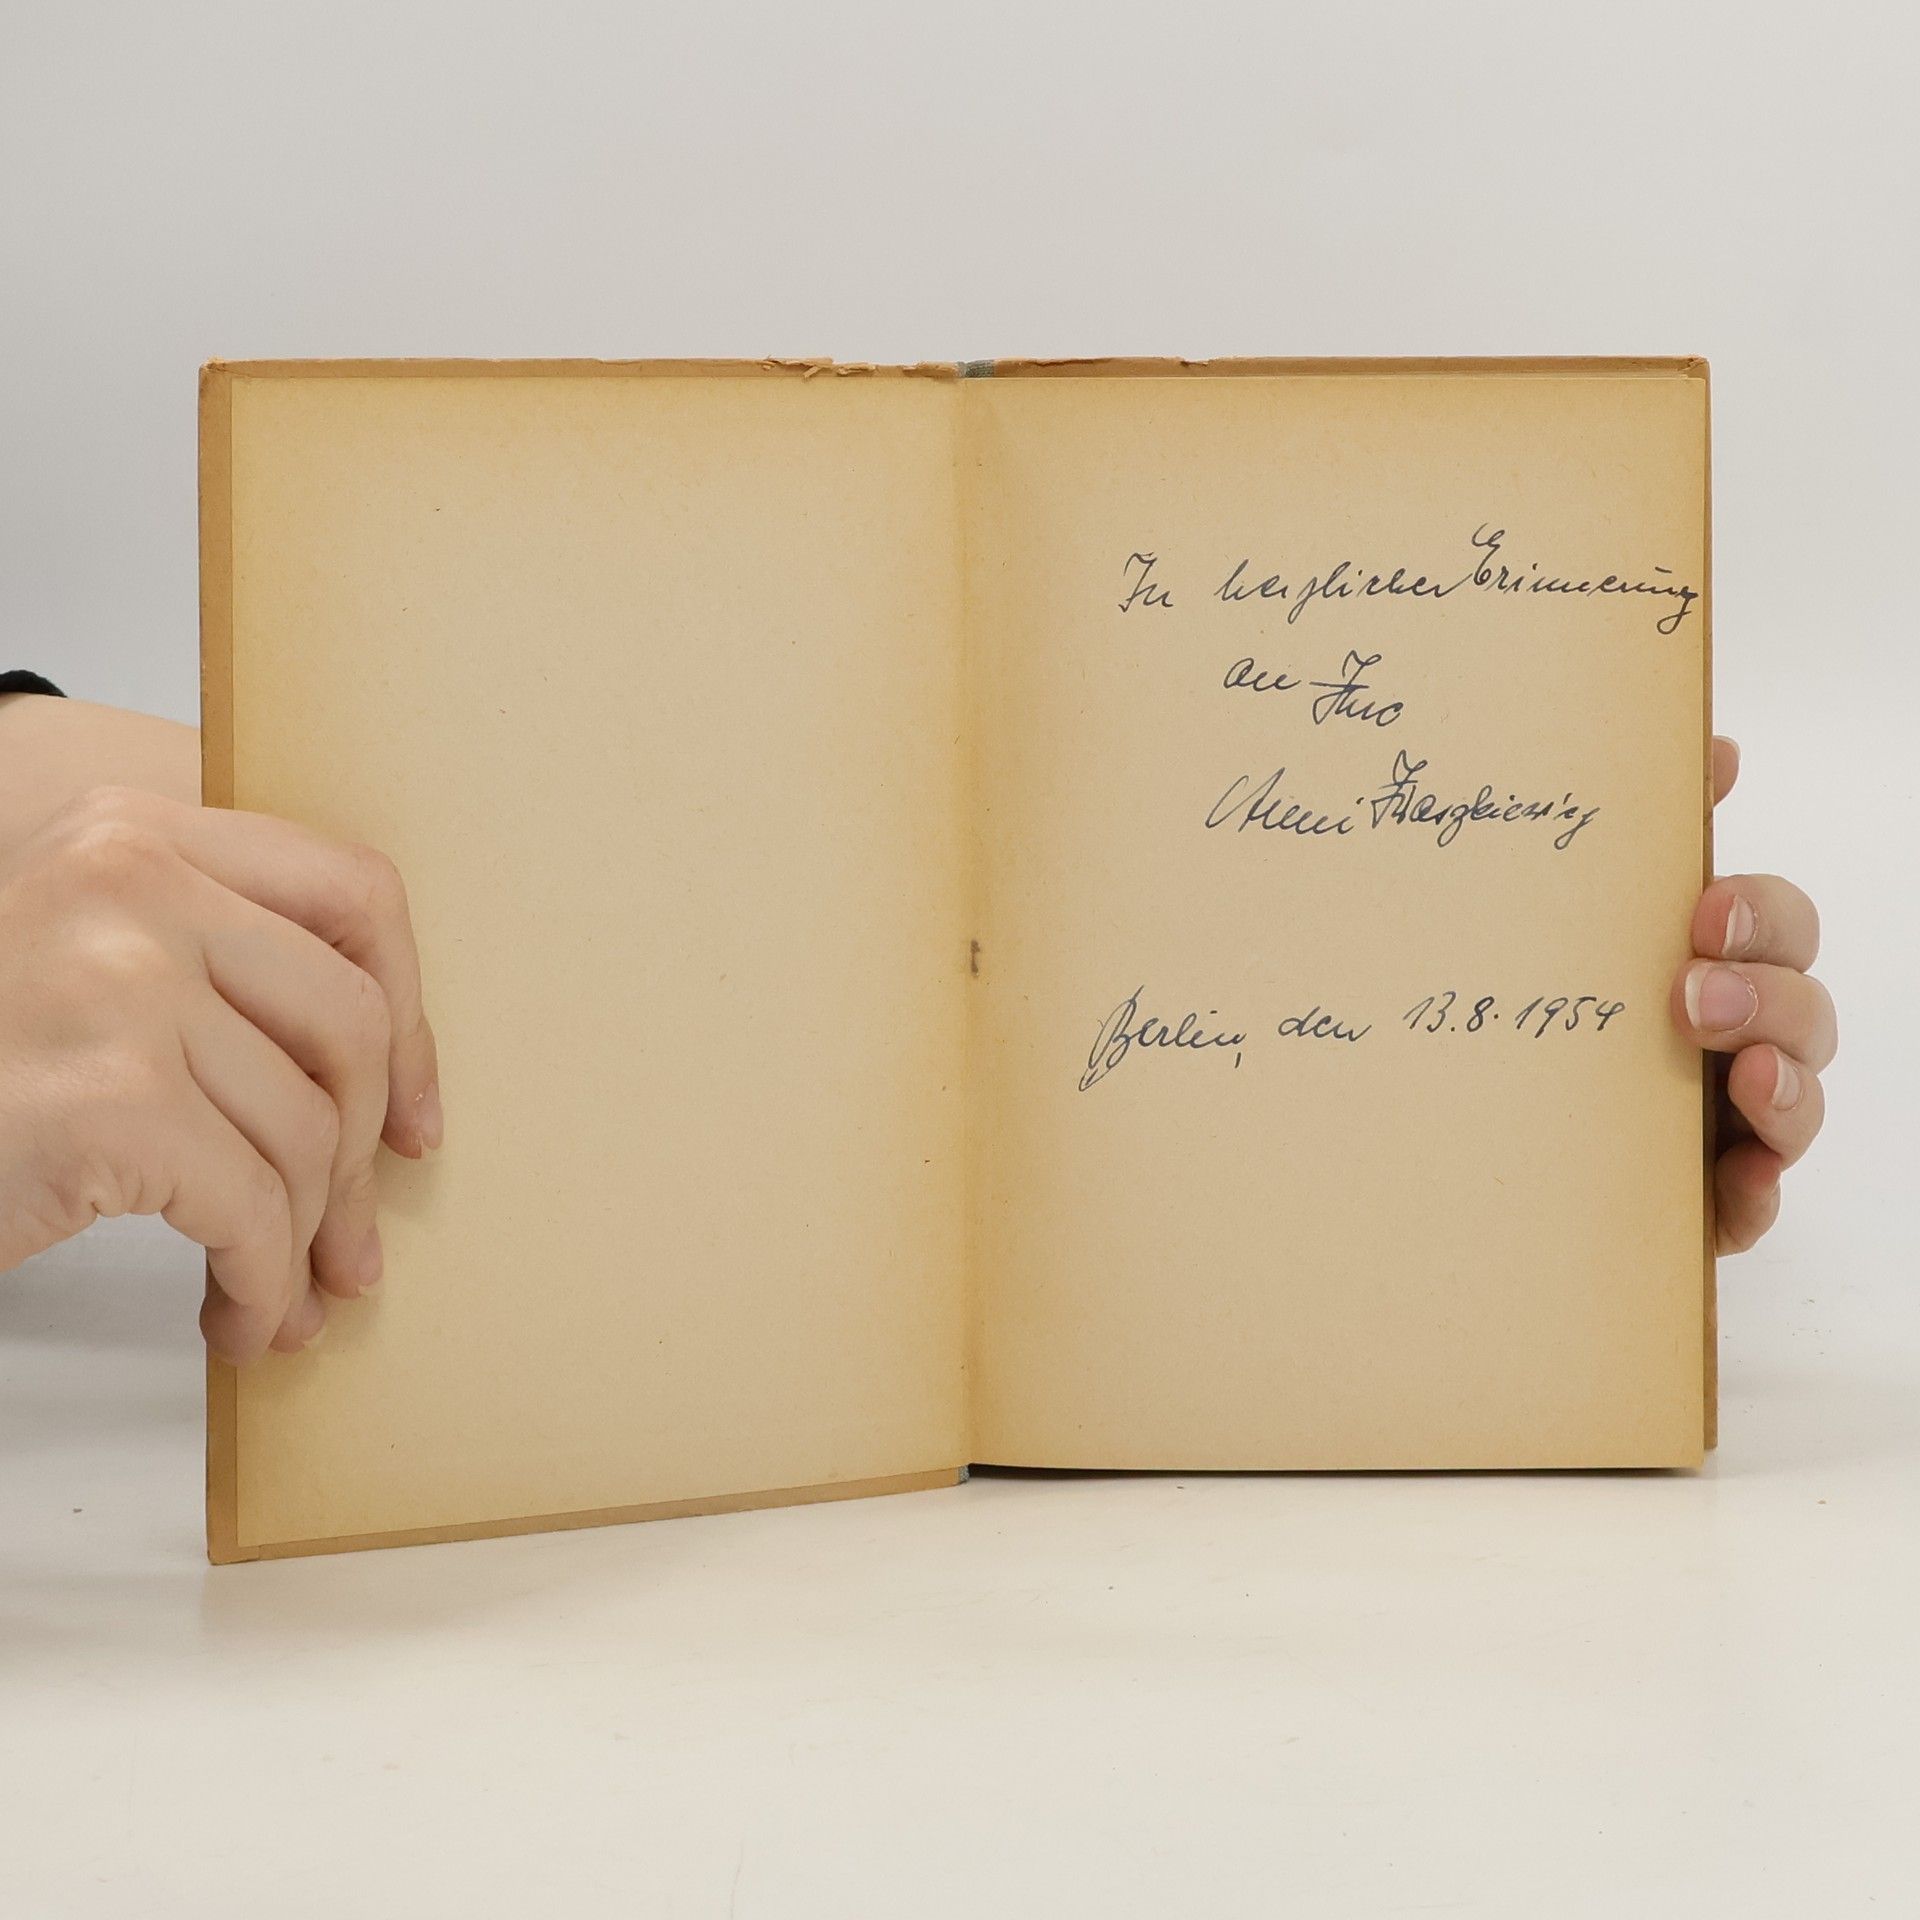 In herzlicher Erinnerung
an Ihre
Anni Iwaszkiewicz
Berlin, den 13.8.1954